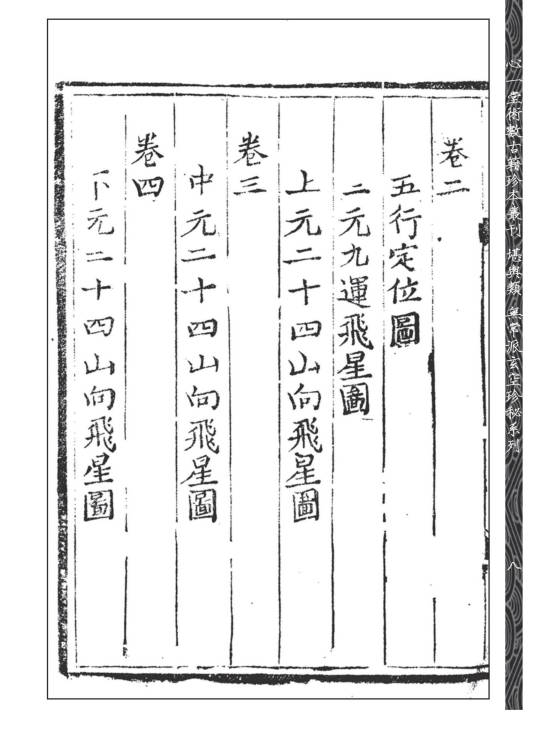 卷二
五行定位圖
二元九運飛星圖
上元二十四山向飛星圖
卷三
中元二十四山向飛星圖
卷四
下元二十四山向飛星圖
心一堂術數古籍珍本叢刊 堪輿類 無常派玄空珍秘系列
八